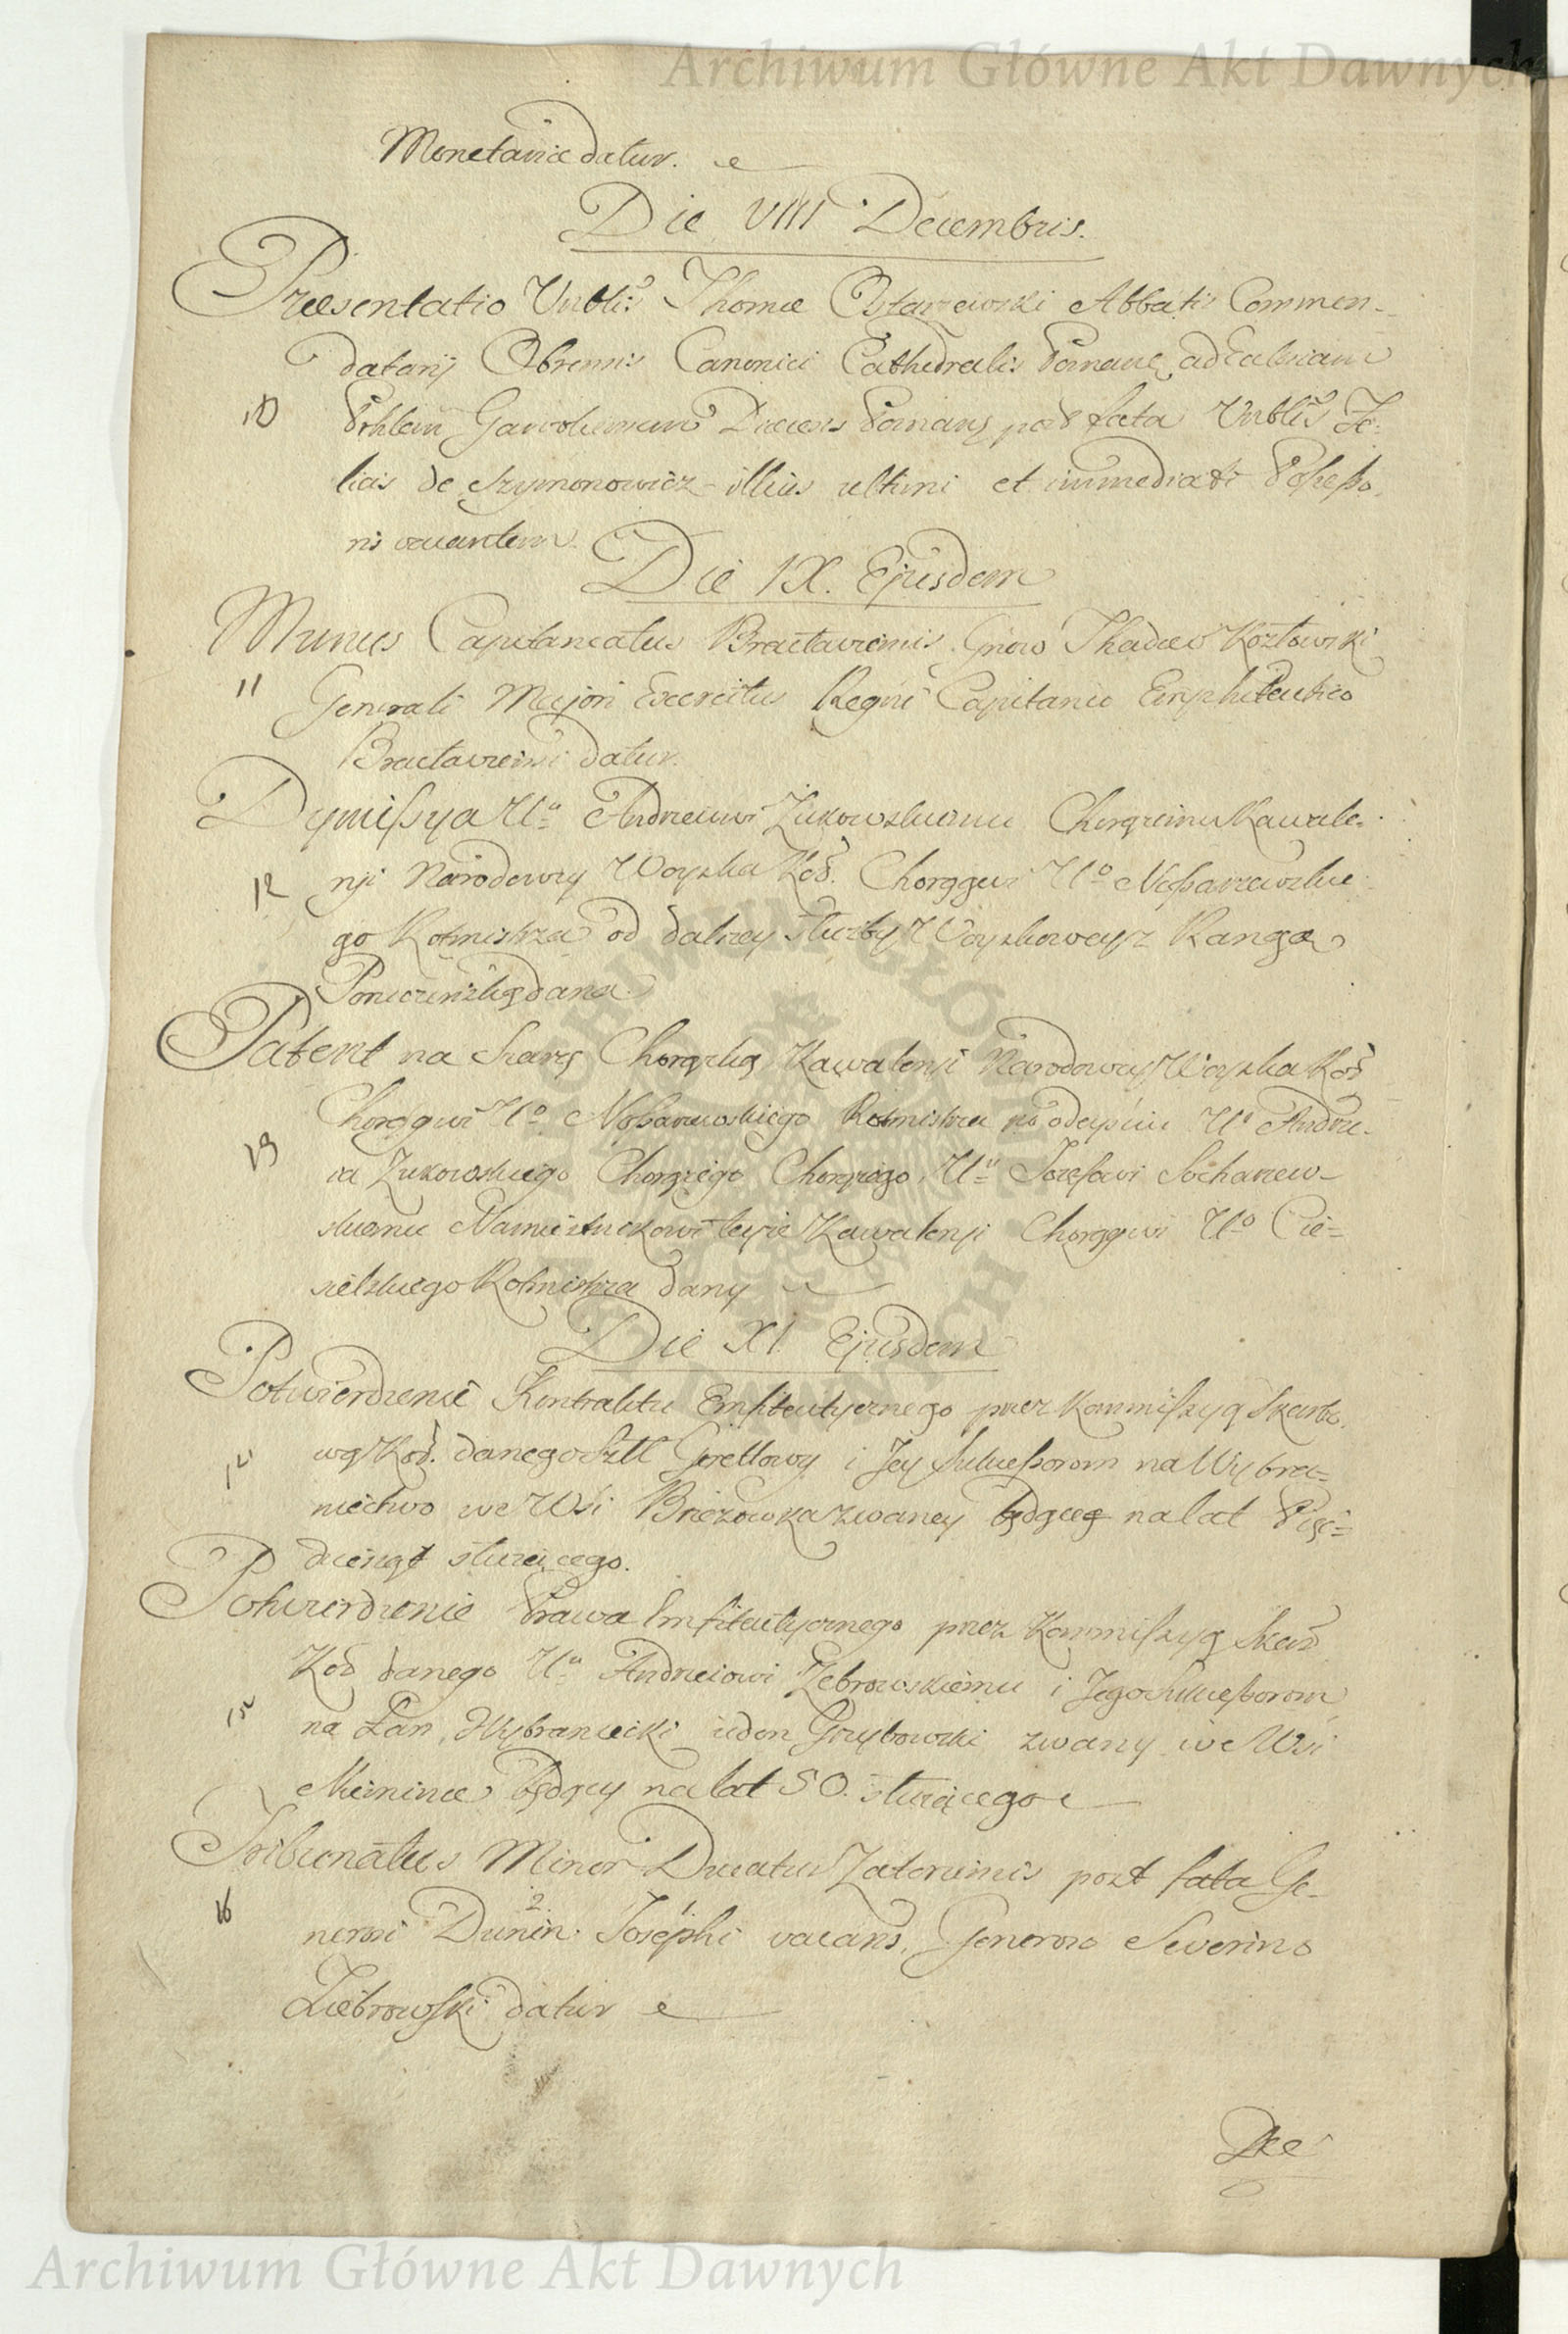 Archiwum Główne Akt Dawnych
Monetariæ datur.
Die VIII Decembris.
Præsentatio Vnblis Thomæ Ostaszewski Abbatis Commen-
datarij Obrennis Canonici Cathedralis Posnans ad Ecclesiam
10 Prhlem Diæcesis Posnans post fata Vnblis Fe-
licis de Szymonowicz illius ultimi et immediati Possesso-
ris vacantem.
Die IX. Ejusdem
Munus Capitaneatus Braclaviensis Gnoso Thadæo Kozłowski
11 Generali Majori Exercitus Regni Capitaneo Emphiteutico
Braclaviensi datur.
Dymissya Uu Andrzeiowi Zukowskiemu Chorążemu Kawale-
12 ryi Narodowey Woyska Kor. Chorągwi Uo
go Rotmistrza od dalszey służby Woyskowey z Rangą
Poruczniką dana
Patent na Szarżę Chorążką Kawaleryi Narodowey Woyska Kor
Chorągwi Uo Rotmistrza po odeyściu Uo Andrze-
13 ia Zukowskiego Chorążego Chorążego, Uu Jozefowi Sochaczew-
skiemu Namiestnikowi teyże Kawaleryi Chorągwi Uo Cie-
sielskiego Rotmistrza dany
Die XI Ejusdem
Potwierdzenie Kontraktu Emfiteutycznego przez Kommissyą Skarbo-
14 wą Kor. danego Szll Grellowy i Jey Sukcessorom na Wybra-
niectwo we Wsi Brzezowka zwaney będące na lat Pięć-
dziesiąt służącego.
Potwierdzenie Prawa Emfiteutycznego przez Kommissyą Skar
Kor danego Uu Andrzeiowi Zebrowskiemu i Jego Sukcessorom
15 na Łan Wybraniecki ieden Grzybowski zwany we Wsi
będący na lat 50. służącego
Tribunatus Minor Ducatus Zatoriensis post fata Ge-
16 nerosi Dunin Josephi vacans, Generoso Severino
Ziebrowski datur
Die
Archiwum Główne Akt Dawnych